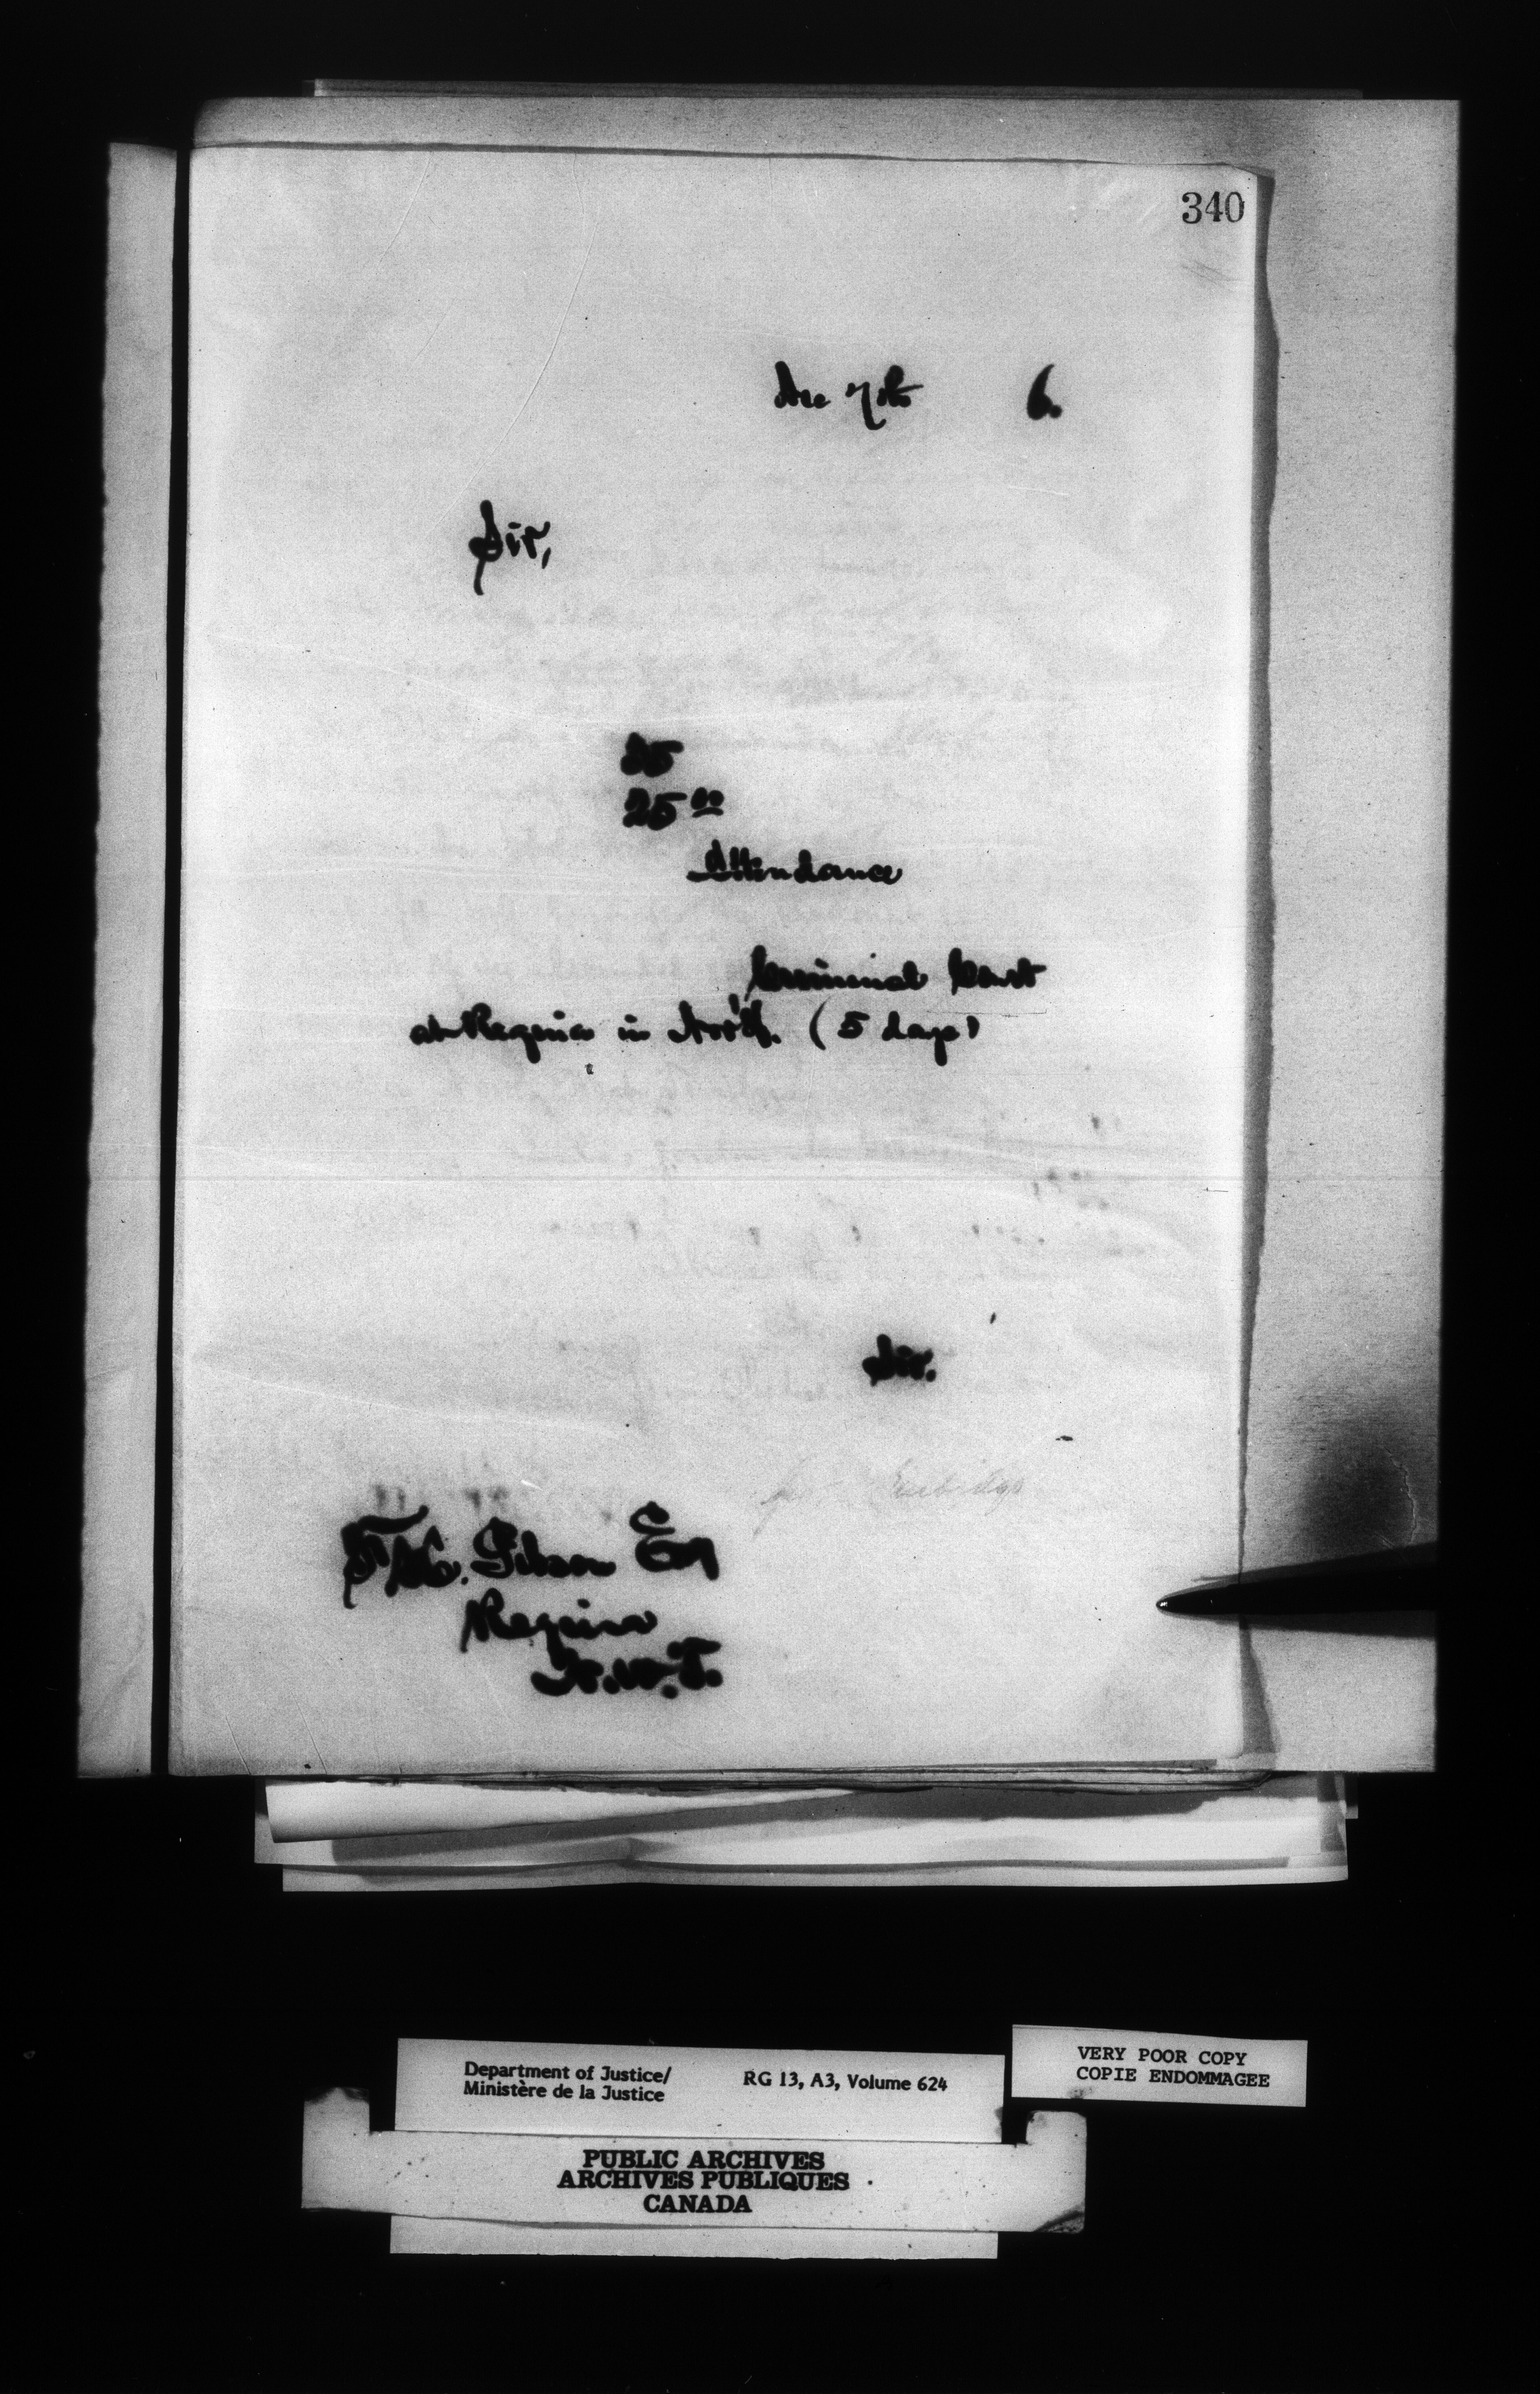 340
Dec 7th 6.
Sir,
25
25 00
Attendance
Criminal Court
at Regina in Nov'b. (5 days)
Sir.
Gibson Esq
Regina
N.W.T.
Department of Justice/
Ministère de la Justice
RG 13, A3, Volume 624
VERY POOR COPY
COPIE ENDOMMAGEE
PUBLIC ARCHIVES
ARCHIVES PUBLIQUES
CANADA